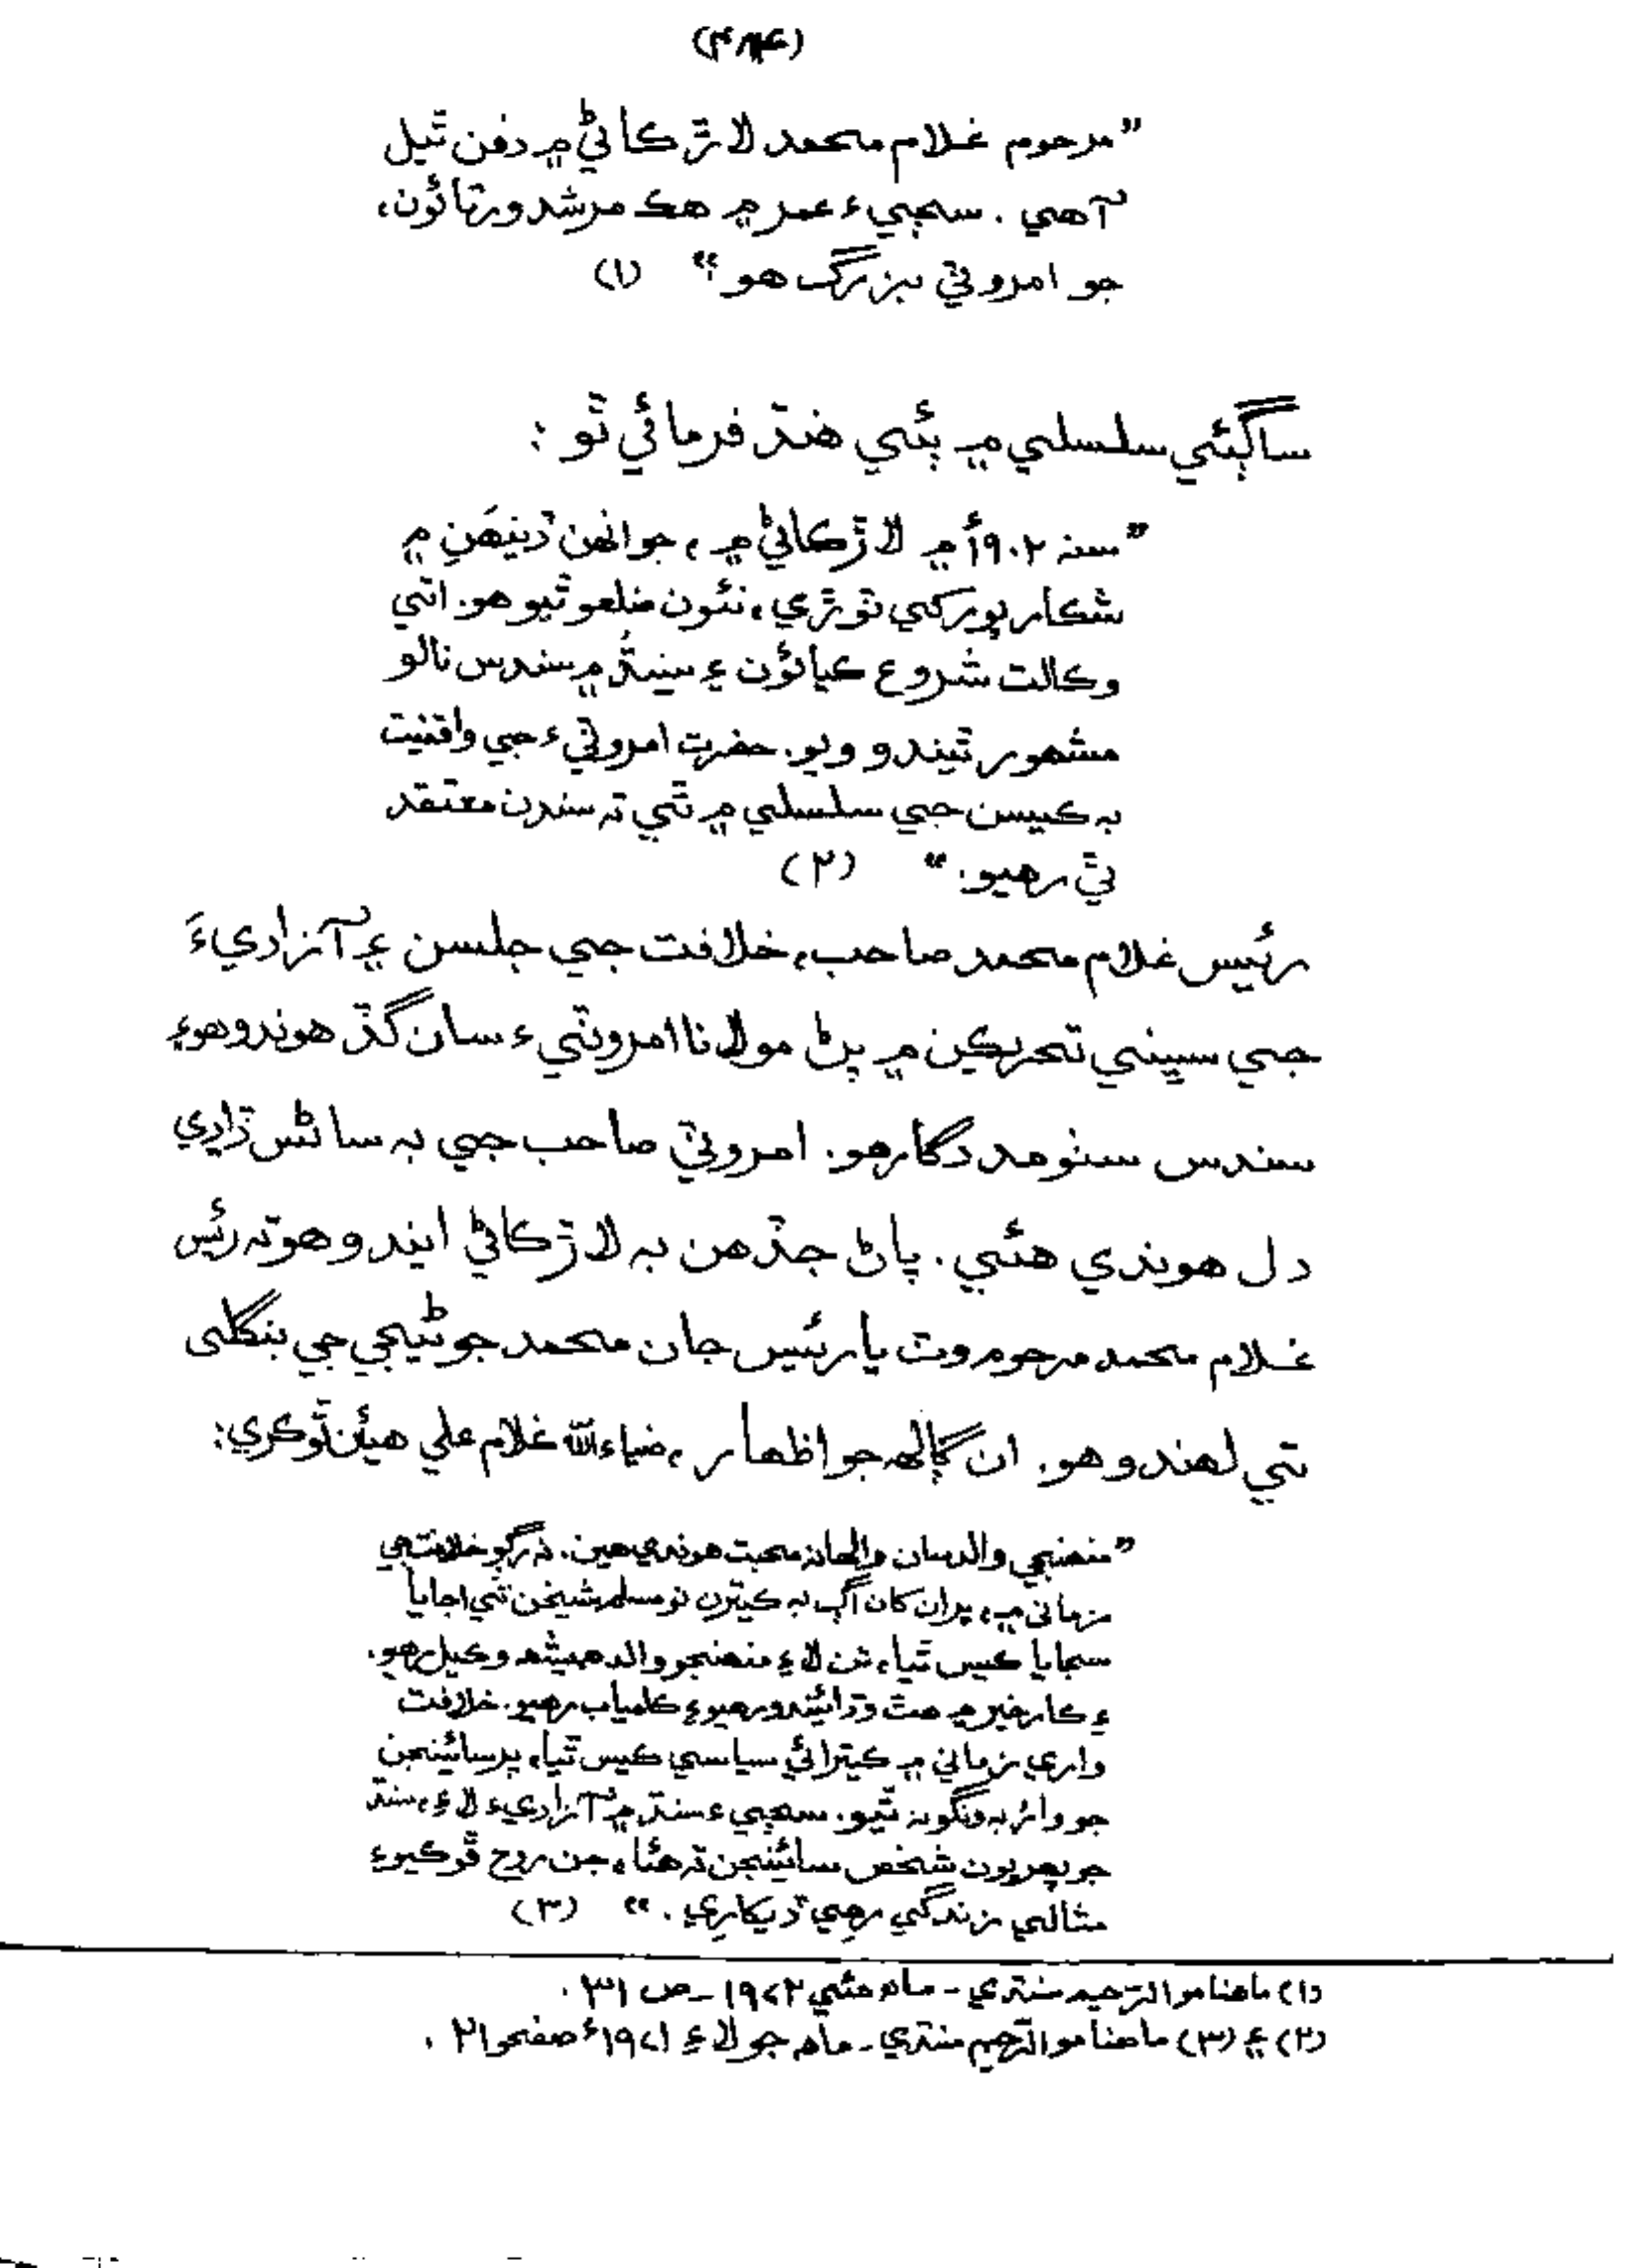 ”مرحوم غلام محمد لاڙڪاڻي ۾ دفن ٿيل
آهي. سڄيءَ عمر ۾ هڪ مرشد ورتائون،
جو امروٽي بزرگ هو“ (۱)
ساڳئي سلسلي ۾ ٻئي هنڌ فرمائي ٿو :
”سنه ۱۹۰۲ع ۾ لاڙڪاڻي ۾، جو انهن ڏينهَن ۾
شڪارپور کي ٽوڙي، نئون ضلعو ٿيو هو. اتي
وڪالت شروع ڪيائون ۽ سنڌ ۾ سندس نالو
مشهور ٿيندو ويو. حضرت امروٽيءَ جي واقفيت
به ڪيسن جي سلسلي ۾ ٿي ته سندن معتقد
ٿي رهيو.“ (۲)
رئيس غلام محمد صاحب، خلافت جي جلسن ۽ آزاديءَ
جي سڀني تحريڪن ۾ پڻ مولانا امروٽيءَ سان گڏ هوندو هو ۽
سندس سٺو مددگار هو. امروٽي صاحب جي به ساڻس ڏاڍي
دل هوندي هئي. پاڻ جڏهن به لاڙڪاڻي ايندو هو ته رئيس
غلام محمد مرحوم وٽ يا رئيس جان محمد جوڻيجي جي بنگلي
تي لهندو هو. ان ڳالهه جو اظهار، ضياءالله غلام علي هيئن ٿو ڪري:
”منهنجي والد سان والهانه محبت هوندي هين. نه رڳو خلافت جي
زماني ۾، پر ان کان اڳ به ڪيترن نومسلم شيخن تي اجايا
سجايا ڪيس ٿيا، تن لاءِ منهنجو والد هميشه وڪيل رهيو.
۽ ڪارخير ۾ هٿ وڌائيندو رهيو ۽ ڪامياب رهيو. خلافت
واري زماني ۾ ڪيترائي سياسي ڪيس ٿيا، پر سائينجن
جو وار به ونگو نه ٿيو. سڄيءَ سنڌ ۾ آزاديءَ لاءِ، سنڌ
جو پهريون شخص سائينجن ته هئا، جن روح ڦوڪيو ۽
مثالي زندگي رهي ڏيکاري.“ (۳)
(۱) ماهنامو الرحيم سنڌي - ماه مئي ۱۹۷۲ - ص ۳۱.
(۲) ۽ (۳) ماهنامو الرحيم سنڌي - ماه جولاءِ ۱۹۷۱ع صفحو ۲۱.